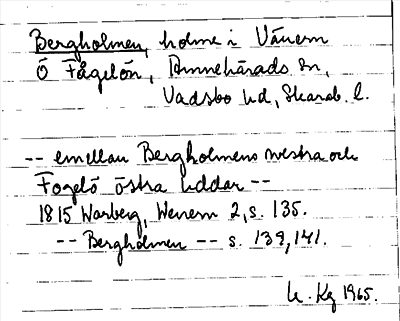 Bergholmen, holme i Vänern
Ö Fågelön, Amnehärads sn,
Vadsbo hd, Skarab. l.
-- emellan Bergholmens westra och
Fogelö östra uddar --
1815 Warberg, Wenern 2, s. 135.
-- Bergholmen -- s. 139, 141.
1965.